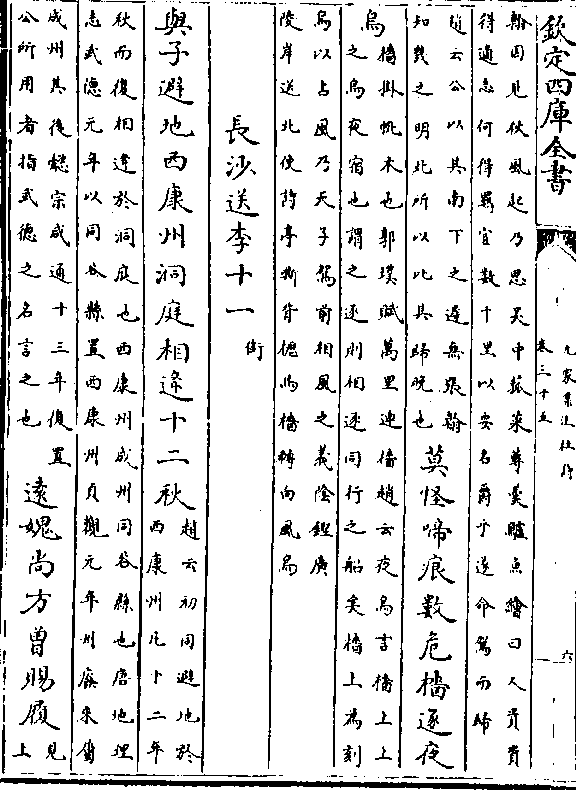 欽定四庫全書
九家集注杜詩
卷三十五
六
翰因見秋風起乃思吳中菰菜蓴羮鱸魚鱠曰人貴貴
得適志何得羈宦數千里以要名爵乎遂命駕而歸
趙云公以其南下之遲無張翰
知幾之明此所以比其歸晚也
莫怪啼痕數危檣逐夜
烏
檣掛帆木也郭璞賦萬里連檣趙云夜烏言檣上上
之烏夜宿也謂之逐則相逐同行之船矣檣上為刻
烏以占風乃天子駕前相風之義陰鏗廣
陵岸送北使詩亭嘶背櫪馬檣轉向風烏
長沙送李十一銜
與子避地西康州洞庭相逢十二秋
趙云初同避地於
西康州凡十二年
秋而復相逢於洞庭也西康州成州同谷縣也唐地理
志武德元年以同谷縣置西康州貞觀元年州廢來屬
成州其後懿宗咸通十三年復置
公所用者指武德之名言之也
遠媿尚方曽賜履
見
上